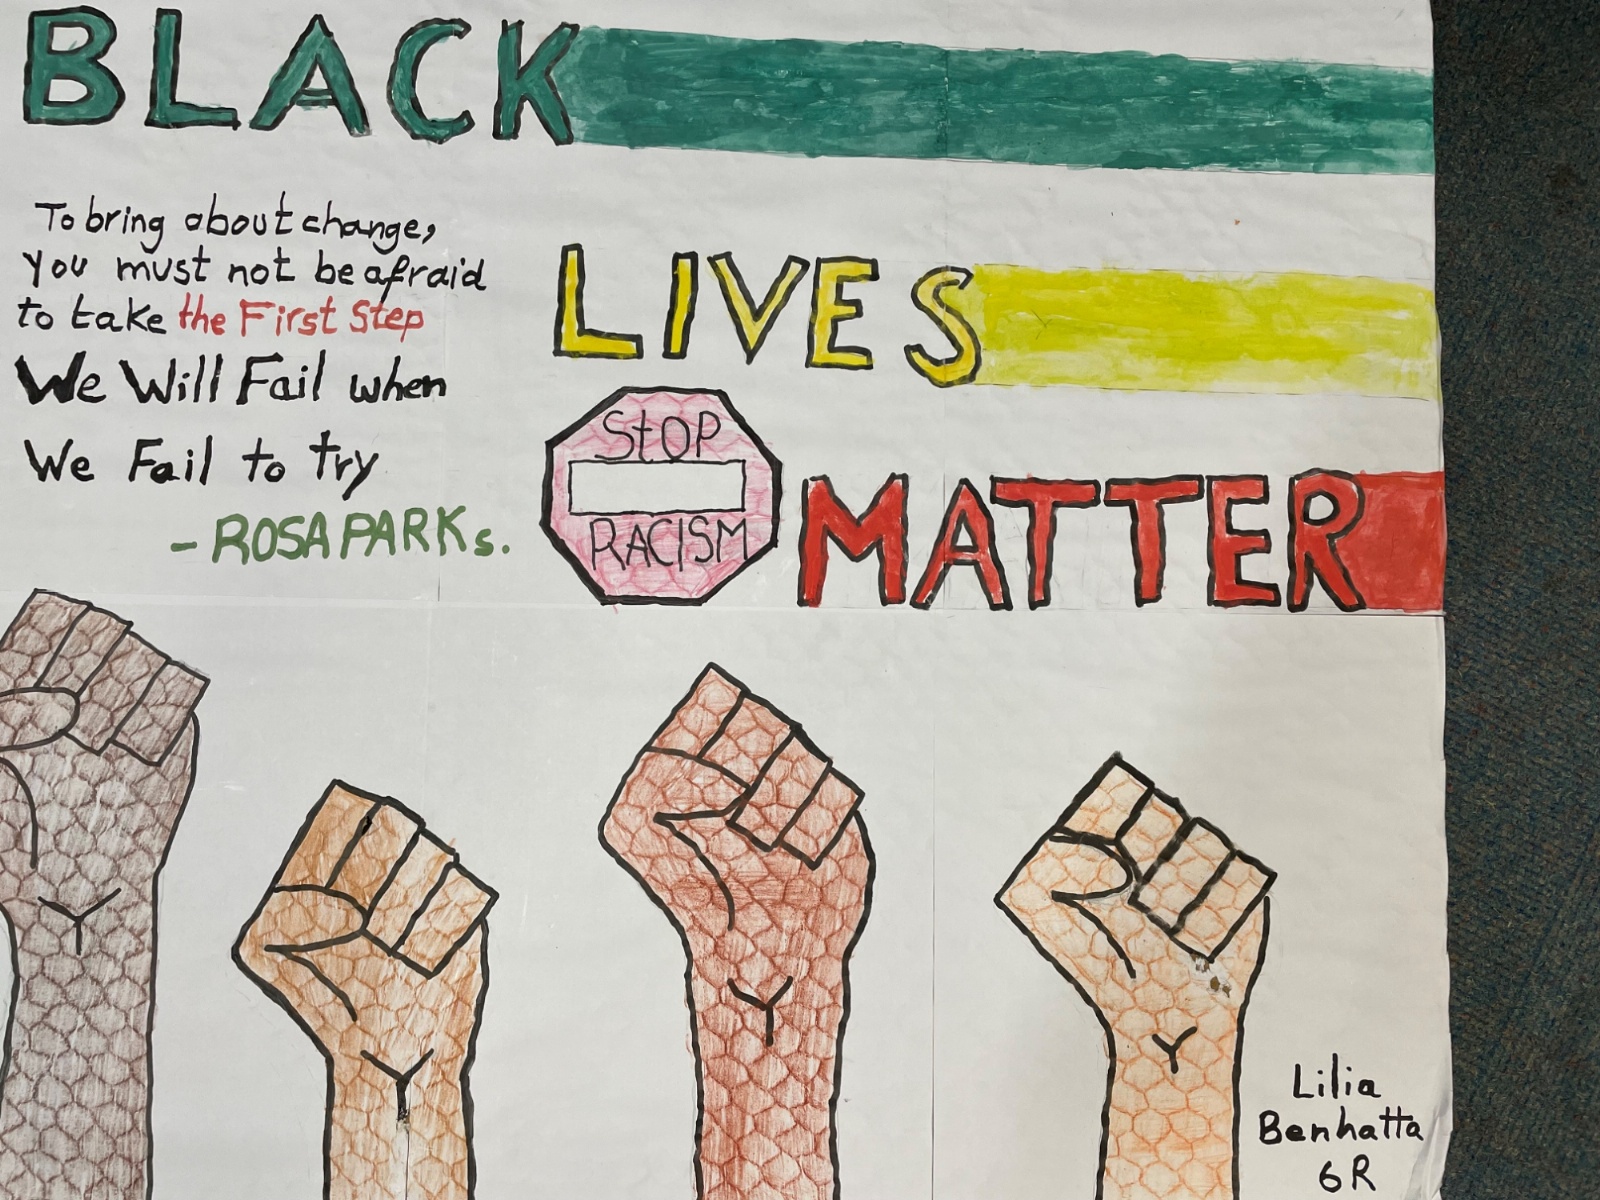 BLACK
To bring about change,
you must not be afraid
to take the First Step
We Will Fail when
We Fail to try
- ROSA PARKs.
LIVES
STOP
RACISM
MATTER
Lilia
Benhatta
6R